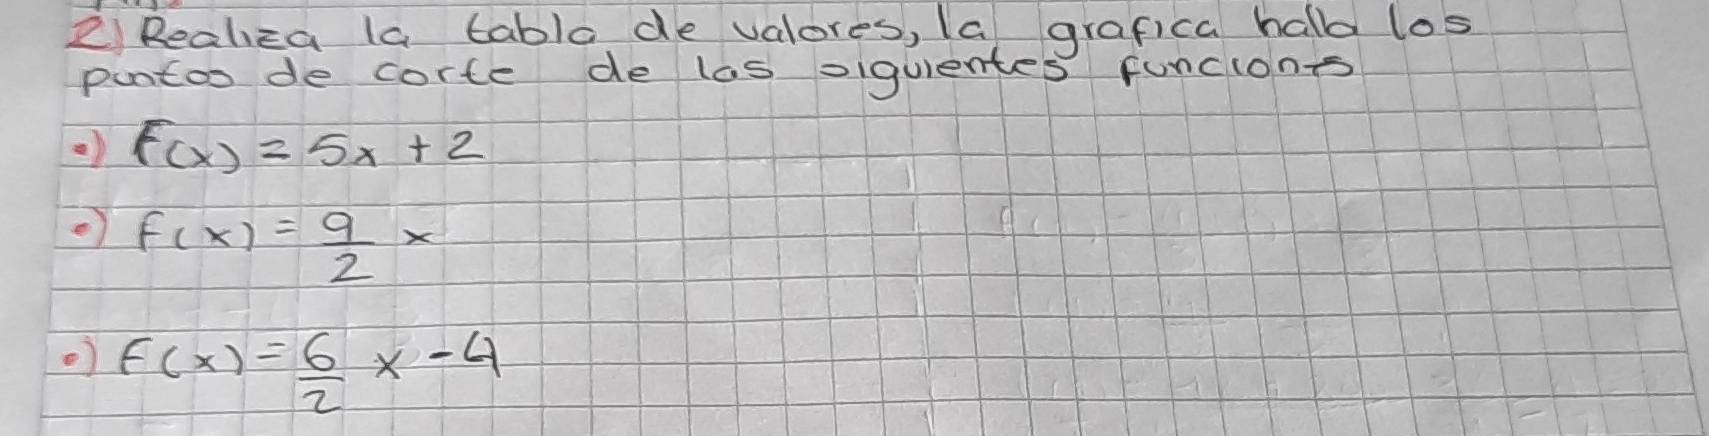 2) Realiza la tabla de valores, la grafica halla los
puntos de corte de las siguientes funciones
•) F(x) = 5x + 2
•) f(x) = 9/2 x
•) F(x) = 6/2 x - 4